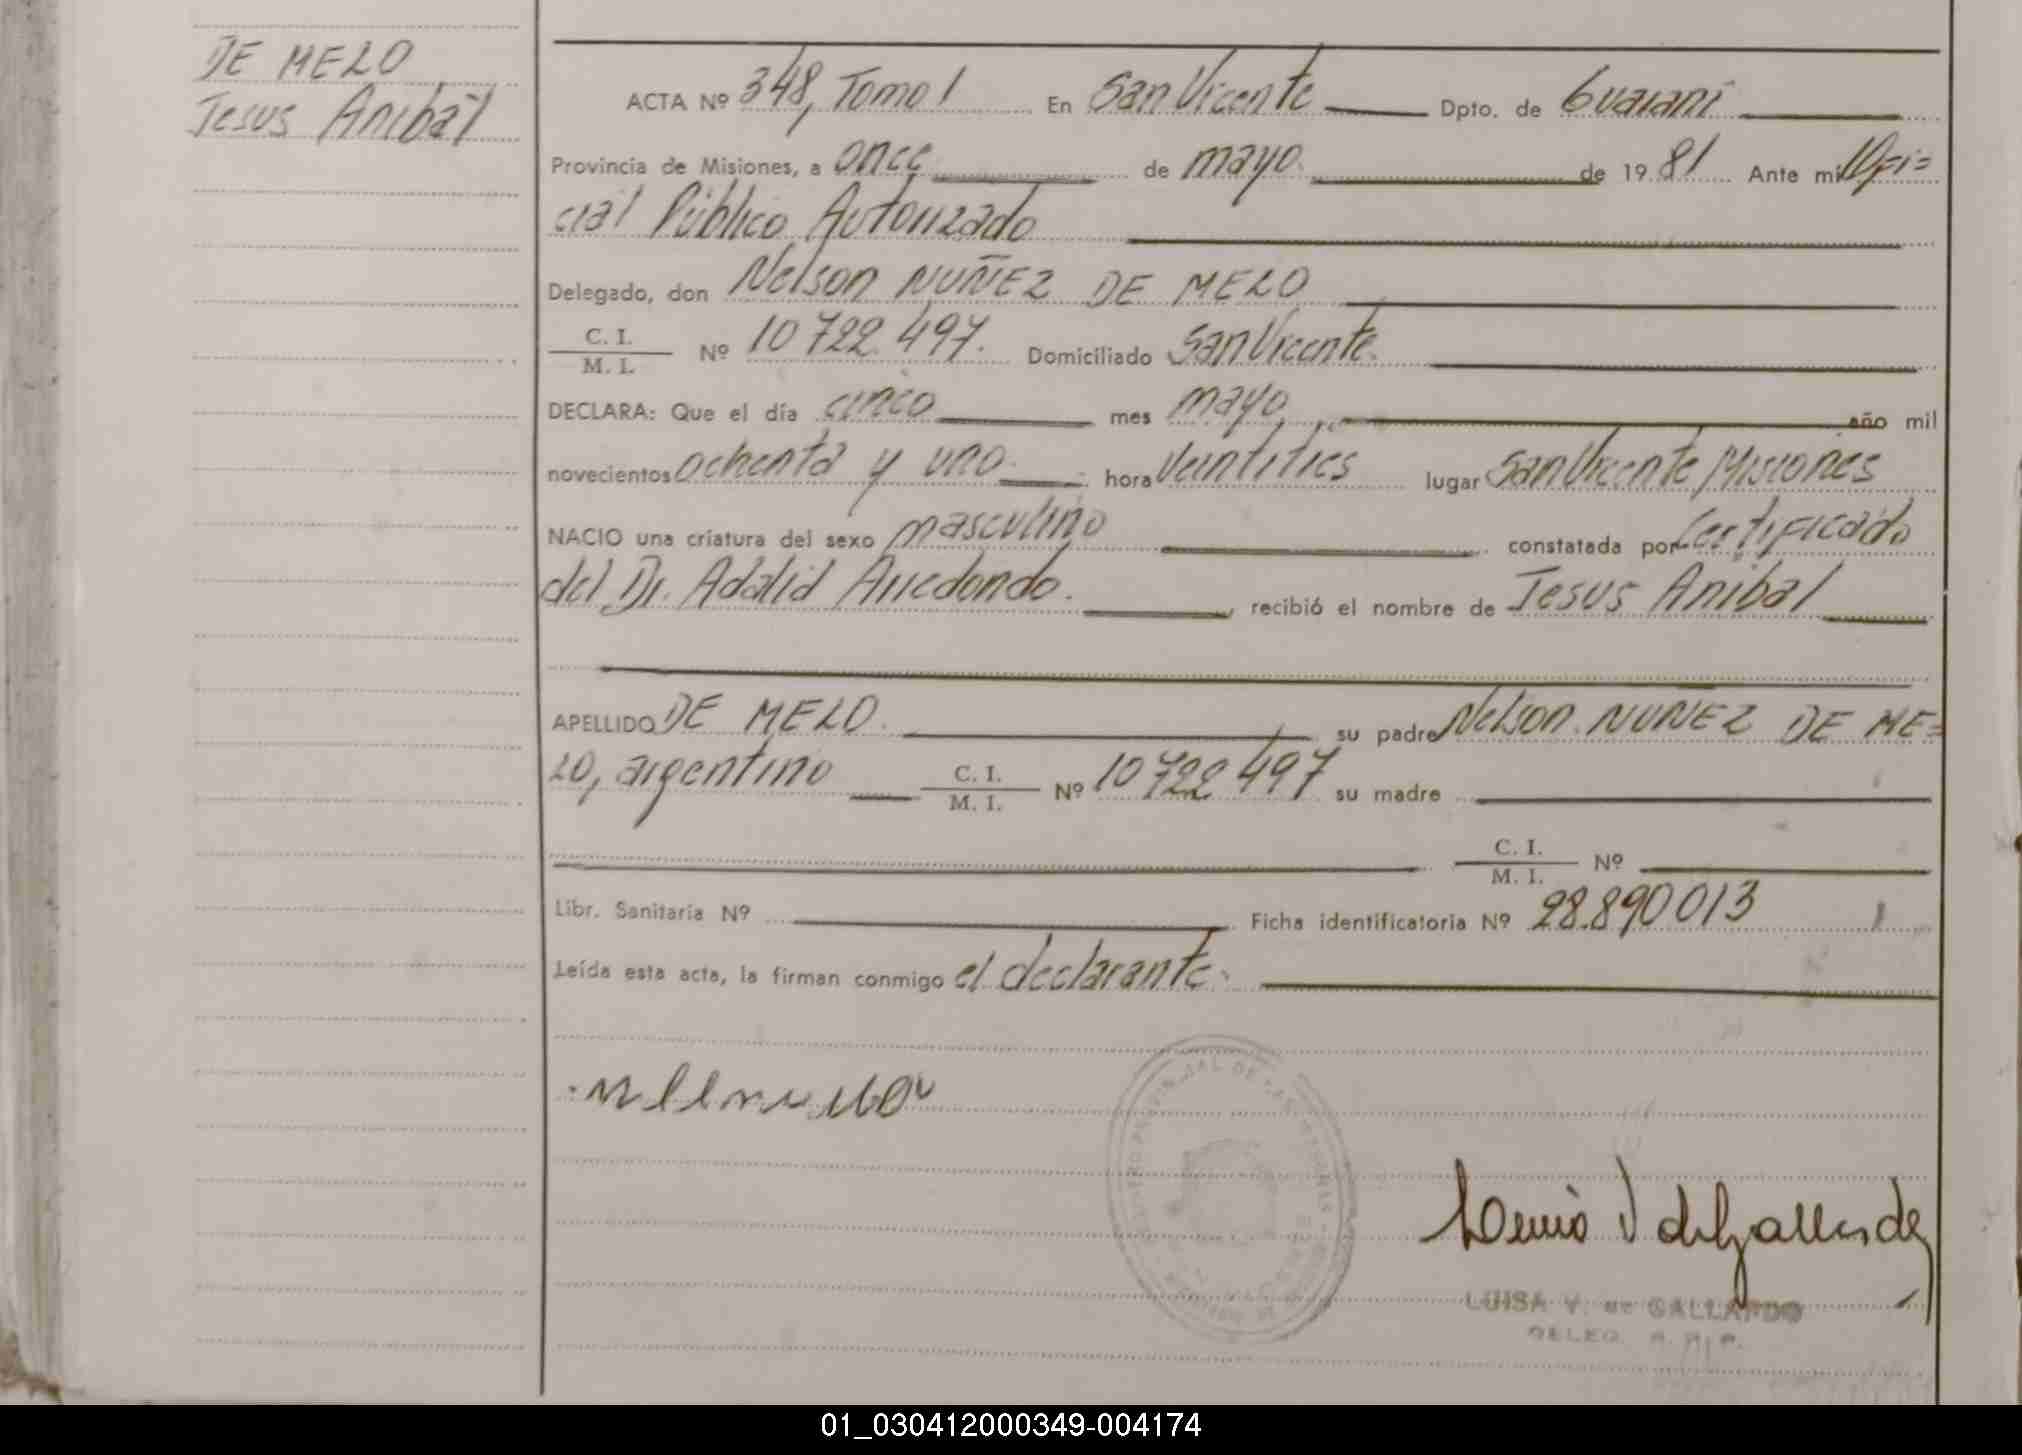 DE MELO
Jesus Anibal
ACTA Nº 348, Tomo 1 En San Vicente Dpto. de Guaraní
Provincia de Misiones, a once de mayo de 1981 Ante mi Ofi=
cial Público Autorizado
Delegado, don Nelson NUÑEZ DE MELO
C. I.
M. I. Nº 10 722 497. Domiciliado San Vicente.
DECLARA: Que el día cinco mes mayo año mil
novecientos ochenta y uno. hora veintitrés lugar San Vicente Misiones
NACIO una criatura del sexo masculino constatada por Certificado
del Dr. Adalid Arredondo. recibió el nombre de Jesus Anibal
APELLIDO DE MELO. su padre Nelson NUÑEZ DE ME=
LO, argentino C. I. M. I. Nº 10 722 497 su madre
C. I.
M. I. Nº
Libr. Sanitaria Nº Ficha identificatoria Nº 28.890013
Leída esta acta, la firman conmigo el declarante.
LUISA V. de GALLARDO
DELEG.
01_030412000349-004174